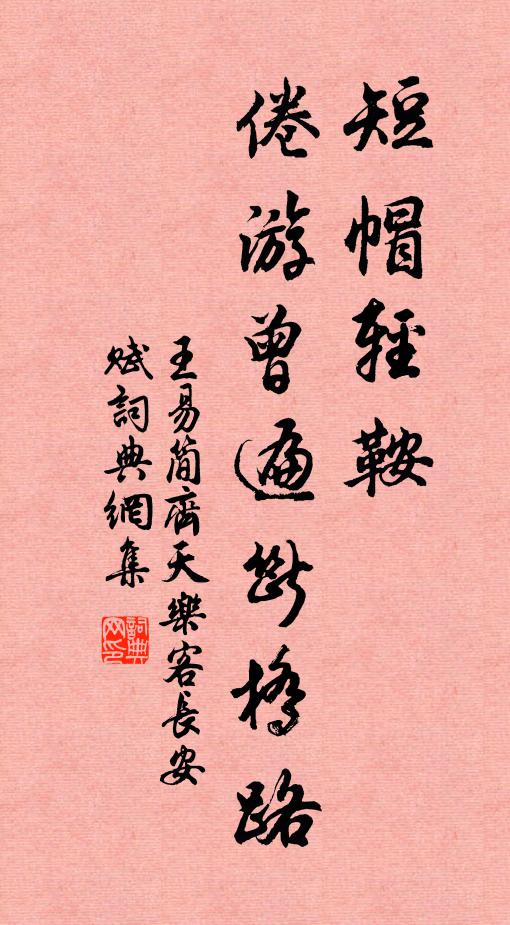 短帽輕鞍
倦游曾遍斷橋路
王易簡齊天樂客長安
賦詞典網集
詞典網印